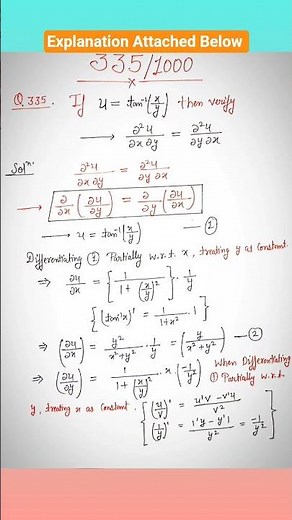 Explanation Attached Below
335/1000
×
Q 335. If u = tan⁻¹(x/y) then verify
⟶ ∂²u/∂x∂y = ∂²u/∂y∂x
Solⁿ. ∂²u/∂x∂y = ∂²u/∂y∂x
⟶ ∂/∂x (∂u/∂y) = ∂/∂y (∂u/∂x)
⟶ u = tan⁻¹(x/y) — ①
Differentiating ① Partially w.r.t. x, treating y as constant.
⇒ ∂u/∂x = {1/(1+(x/y)²)} · 1/y
{(tan⁻¹x)' = 1/(1+x²) · 1}
⇒ (∂u/∂x) = y²/(x²+y²) · 1/y = (y/(x²+y²)) — ②
⇒ (∂u/∂y) = 1/(1+(x/y)²) · x · (-1/y²) When Differentiating
① Partially w.r.t.
y, treating x as constant. {(u/v)' = (u'v - v'u)/v²
(1/y)' = (1'y - y'1)/y² = -1/y²}